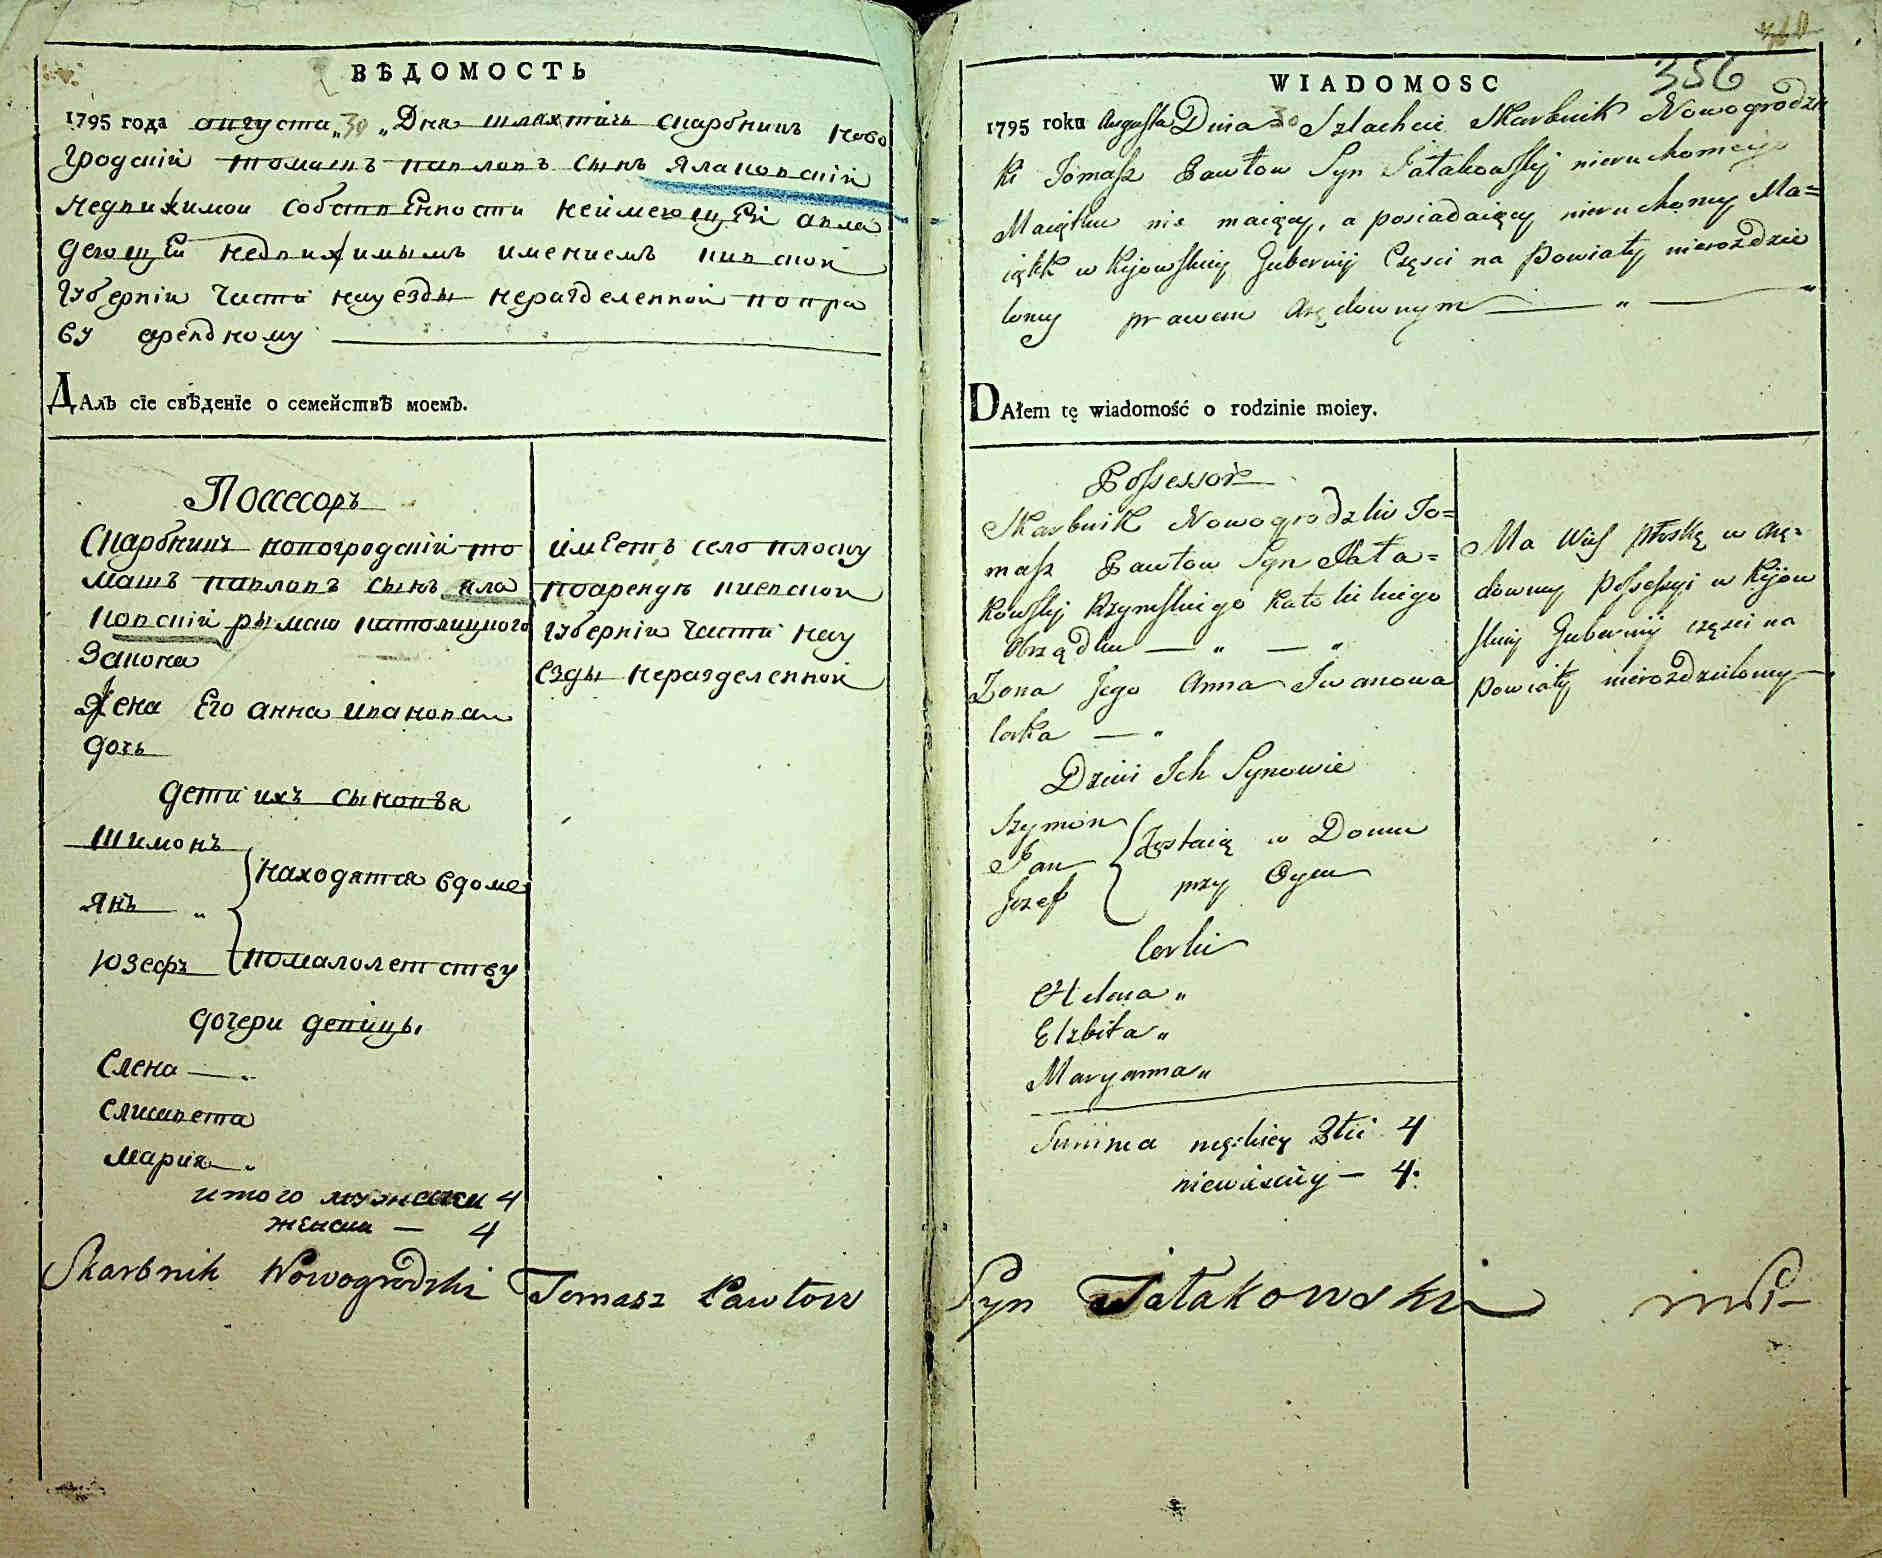 ВѢДОМОСТЬ
1795 года августа „30 „Дня шляхтичъ скарбникъ ново
гродскiй томашъ павловъ сынъ ялаковскiй
недвижимой собственности неимеющей авла
деющей недвижимымъ имениемъ киевской
губернiи части науезды неразделенной попра
ву арендному
ДАлъ сiе свѣденiе о семействѣ моемъ.
Поссесоръ
Скарбникъ новогродскiй то
машъ павловъ сынъ яла
ковскiй рымско католицкого
Закона
Жена Его анна иванова
дочь
дети ихъ сыновья
шимонъ
янъ „
юзефъ
находятся вдоме
помалолетству
дочери девицы
Елена — „
Елисавета
Мария — „
итого мужеска 4
женска — 4
имеетъ село плоску
поарендѣ киевской
губернiи части нау
езды неразделенной
Skarbnik Nowogrodzki Tomasz Pawłow
356
WIADOMOSC
1795 roku Augusta Dnia 30 Szlachcic Skarbnik Nowogrodz
ki Tomasz Pawłow Syn Jałakowskij nieruchomego
Maiątku nie maiący, a posiadaiący nieruchomy Ma=
iątek w Kijowskiey Gubernij Części na Powiaty nierozdzie
loney prawem Arędownym — „ — „
DAłem tę wiadomość o rodzinie moiey.
Possessor
Skarbnik Nowogrodzki To=
masz Pawłow Syn Jała=
kowskij Rzymskiego Katolickiego
Obrządku — „ — „
Żona Jego Anna Iwanowa
Corka — „
Dzieci Ich Synowie
Szymon
Jan
Jozef
Zostaią w Domu
przy Oycu
Corki
Helena „
Elzbieta „
Maryanna „
Summa męskiey Płci 4
niewieściey — 4.
Ma Wieś Płoskę w Arę=
downey Possessyi w Kijow
skiey Gubernij części na
Powiaty nierozdzieloney —
Syn Jałakowski